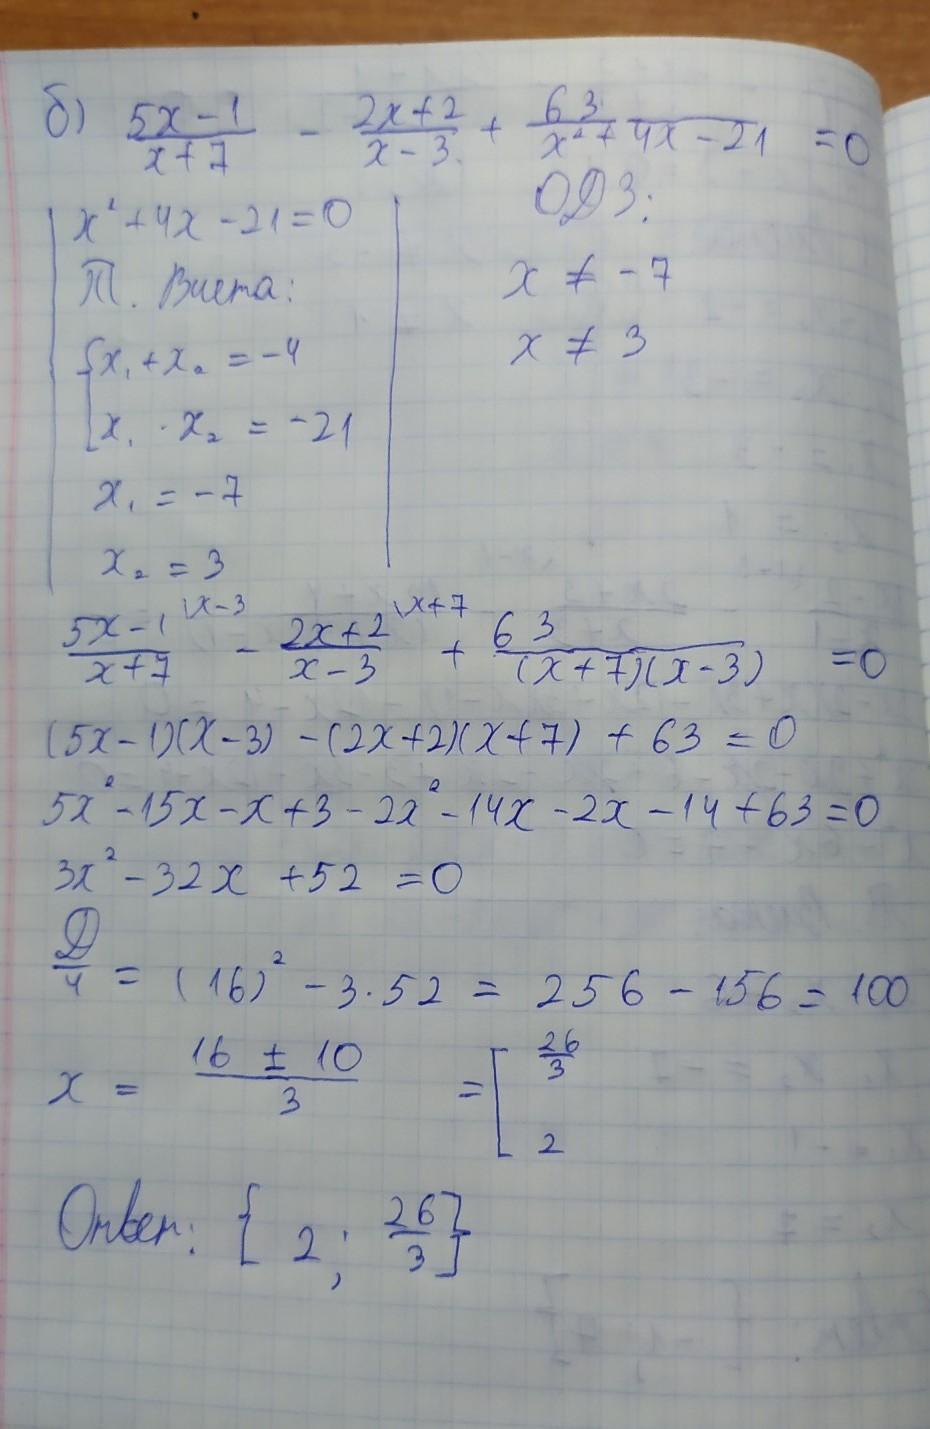 б) (5x-1)/(x+7) - (2x+2)/(x-3) + 63/(x²+4x-21) =0
x²+4x-21=0
ОДЗ:
Т. Виета:
x ≠ -7
{x₁+x₂ =-4
x ≠ 3
x₁ · x₂ = -21
x₁ = -7
x₂ = 3
(5x-1)/(x+7) \x-3 - (2x+2)/(x-3) \x+7 + 63/((x+7)(x-3)) =0
(5x-1)(x-3) -(2x+2)(x+7) + 63 =0
5x²-15x-x+3-2x²-14x-2x-14+63=0
3x²-32x +52 =0
D/4 = (16)² -3·52 = 256 -156= 100
x = (16 ± 10)/3 = [ 26/3
2
Ответ: { 2; 26/3}